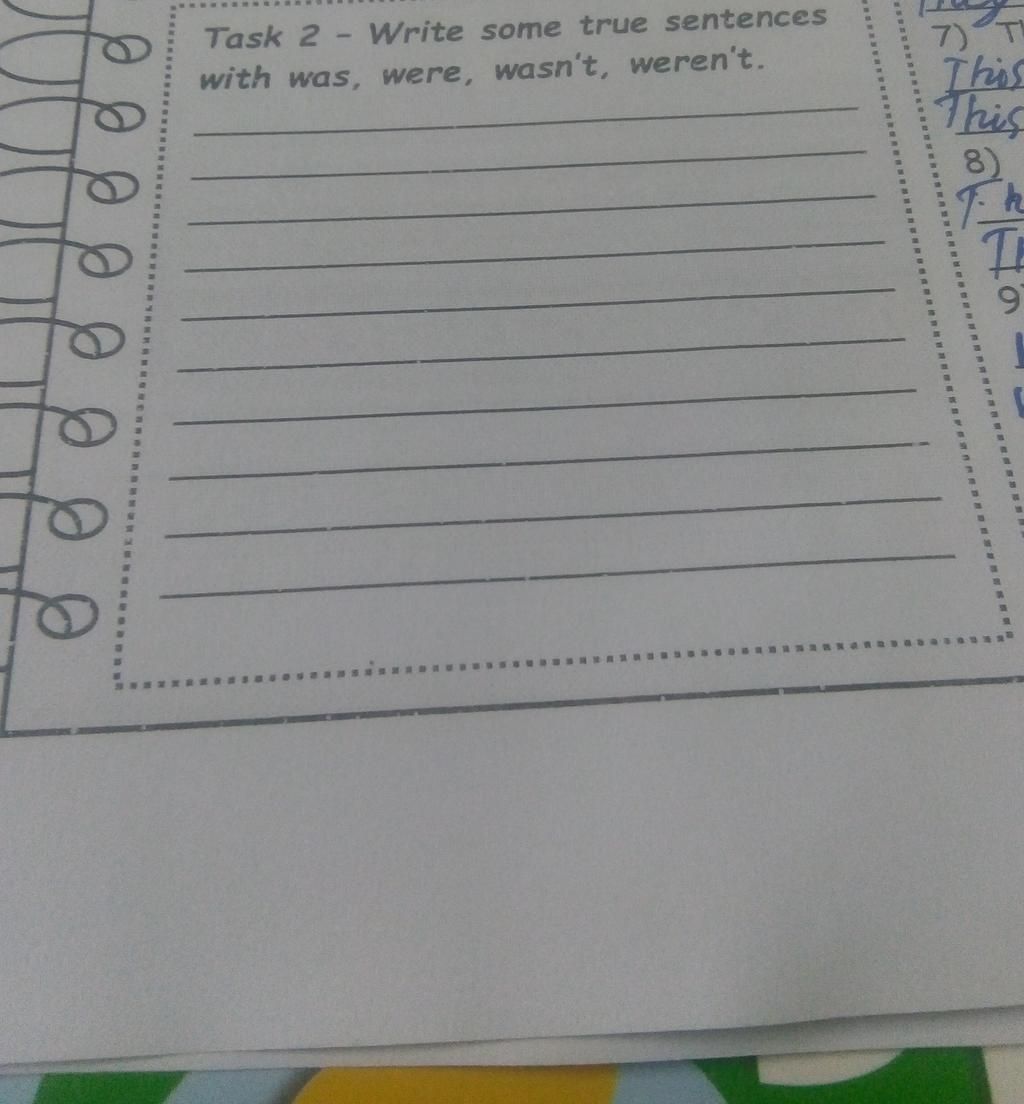 Task 2 - Write some true sentences
with was, were, wasn't, weren't.
7)
This
This
8)
9)